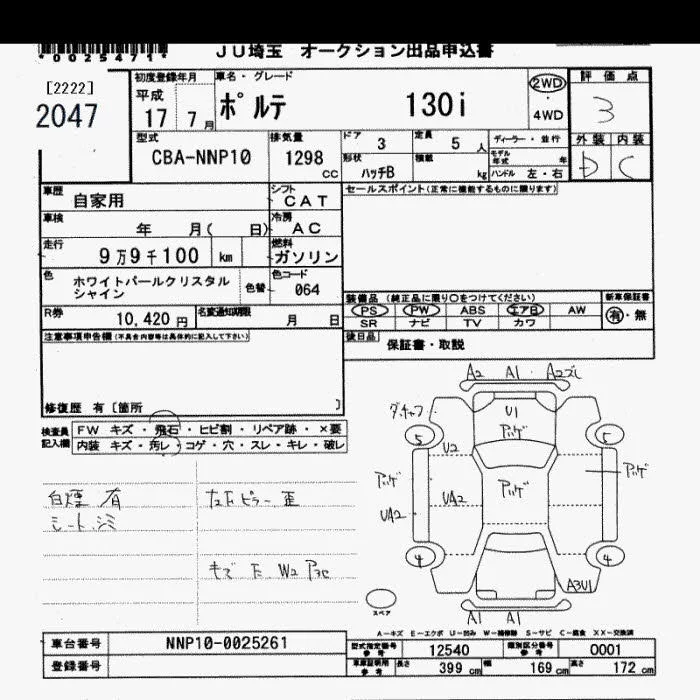 *0025471*
JU埼玉 オークション出品申込書
[2222]
2047
初度登録年月
平成
17 7月
車名・グレード
ポルテ 130i
2WD
・
4WD
評価点
3
型式
CBA-NNP10
排気量
1298
cc
ドア
3
定員
5人
形状
ハッチB
積載
kg
ディーラー・並行
モデル年式 年
ハンドル 左・右
外装 内装
D C
車歴
自家用
シフト
CAT
セールスポイント(正常に機能するものに限ります)
車検
年 月( 日)
冷房
AC
走行
9万9千100 km
燃料
ガソリン
色
ホワイトパールクリスタル
シャイン
色替
色コード
064
R券
10,420円
名変通知期限
月 日
装備品 (純正品に限り○をつけてください)
新車保証書
PS PW ABS エアB AW
SR ナビ TV カワ
有・無
後日品
保証書・取説
注意事項申告欄(不具合内容等は具体的に記入して下さい)
修復歴 有[箇所 ]
検査員
記入欄
FW キズ・飛石・ヒビ割・リペア跡・×要
内装 キズ・汚レ・コゲ・穴・スレ・キレ・破レ
白煙 有
シート シミ
キズ
W2
A2 A1 A2ズレ
U1
5 5
U2
ハゲ
ハゲ
ハゲ
ハゲ
UA2
UA2
4 4
A3U1
スペア
A1 A1
A-キズ E-エクボ U-凹み W-補修跡 S-サビ C-腐食 XX-交換済
車台番号
NNP10-0025261
登録番号
型式指定番号
参考
12540
類別区分番号
参考
0001
車庫証明用
参考
長さ
399 cm
幅
169 cm
高さ
172 cm